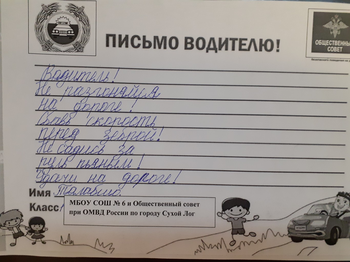 ПИСЬМО ВОДИТЕЛЮ!
ОБЩЕСТВЕННЫЙ
СОВЕТ
Водитель!
Не разгоняйся
на дороге!
Сбавь скорость
перед зеброй!
Не садись за
руль пьяным!
Удачи на дороге!
Имя
Класс
МБОУ СОШ № 6 и Общественный совет
при ОМВД России по городу Сухой Лог